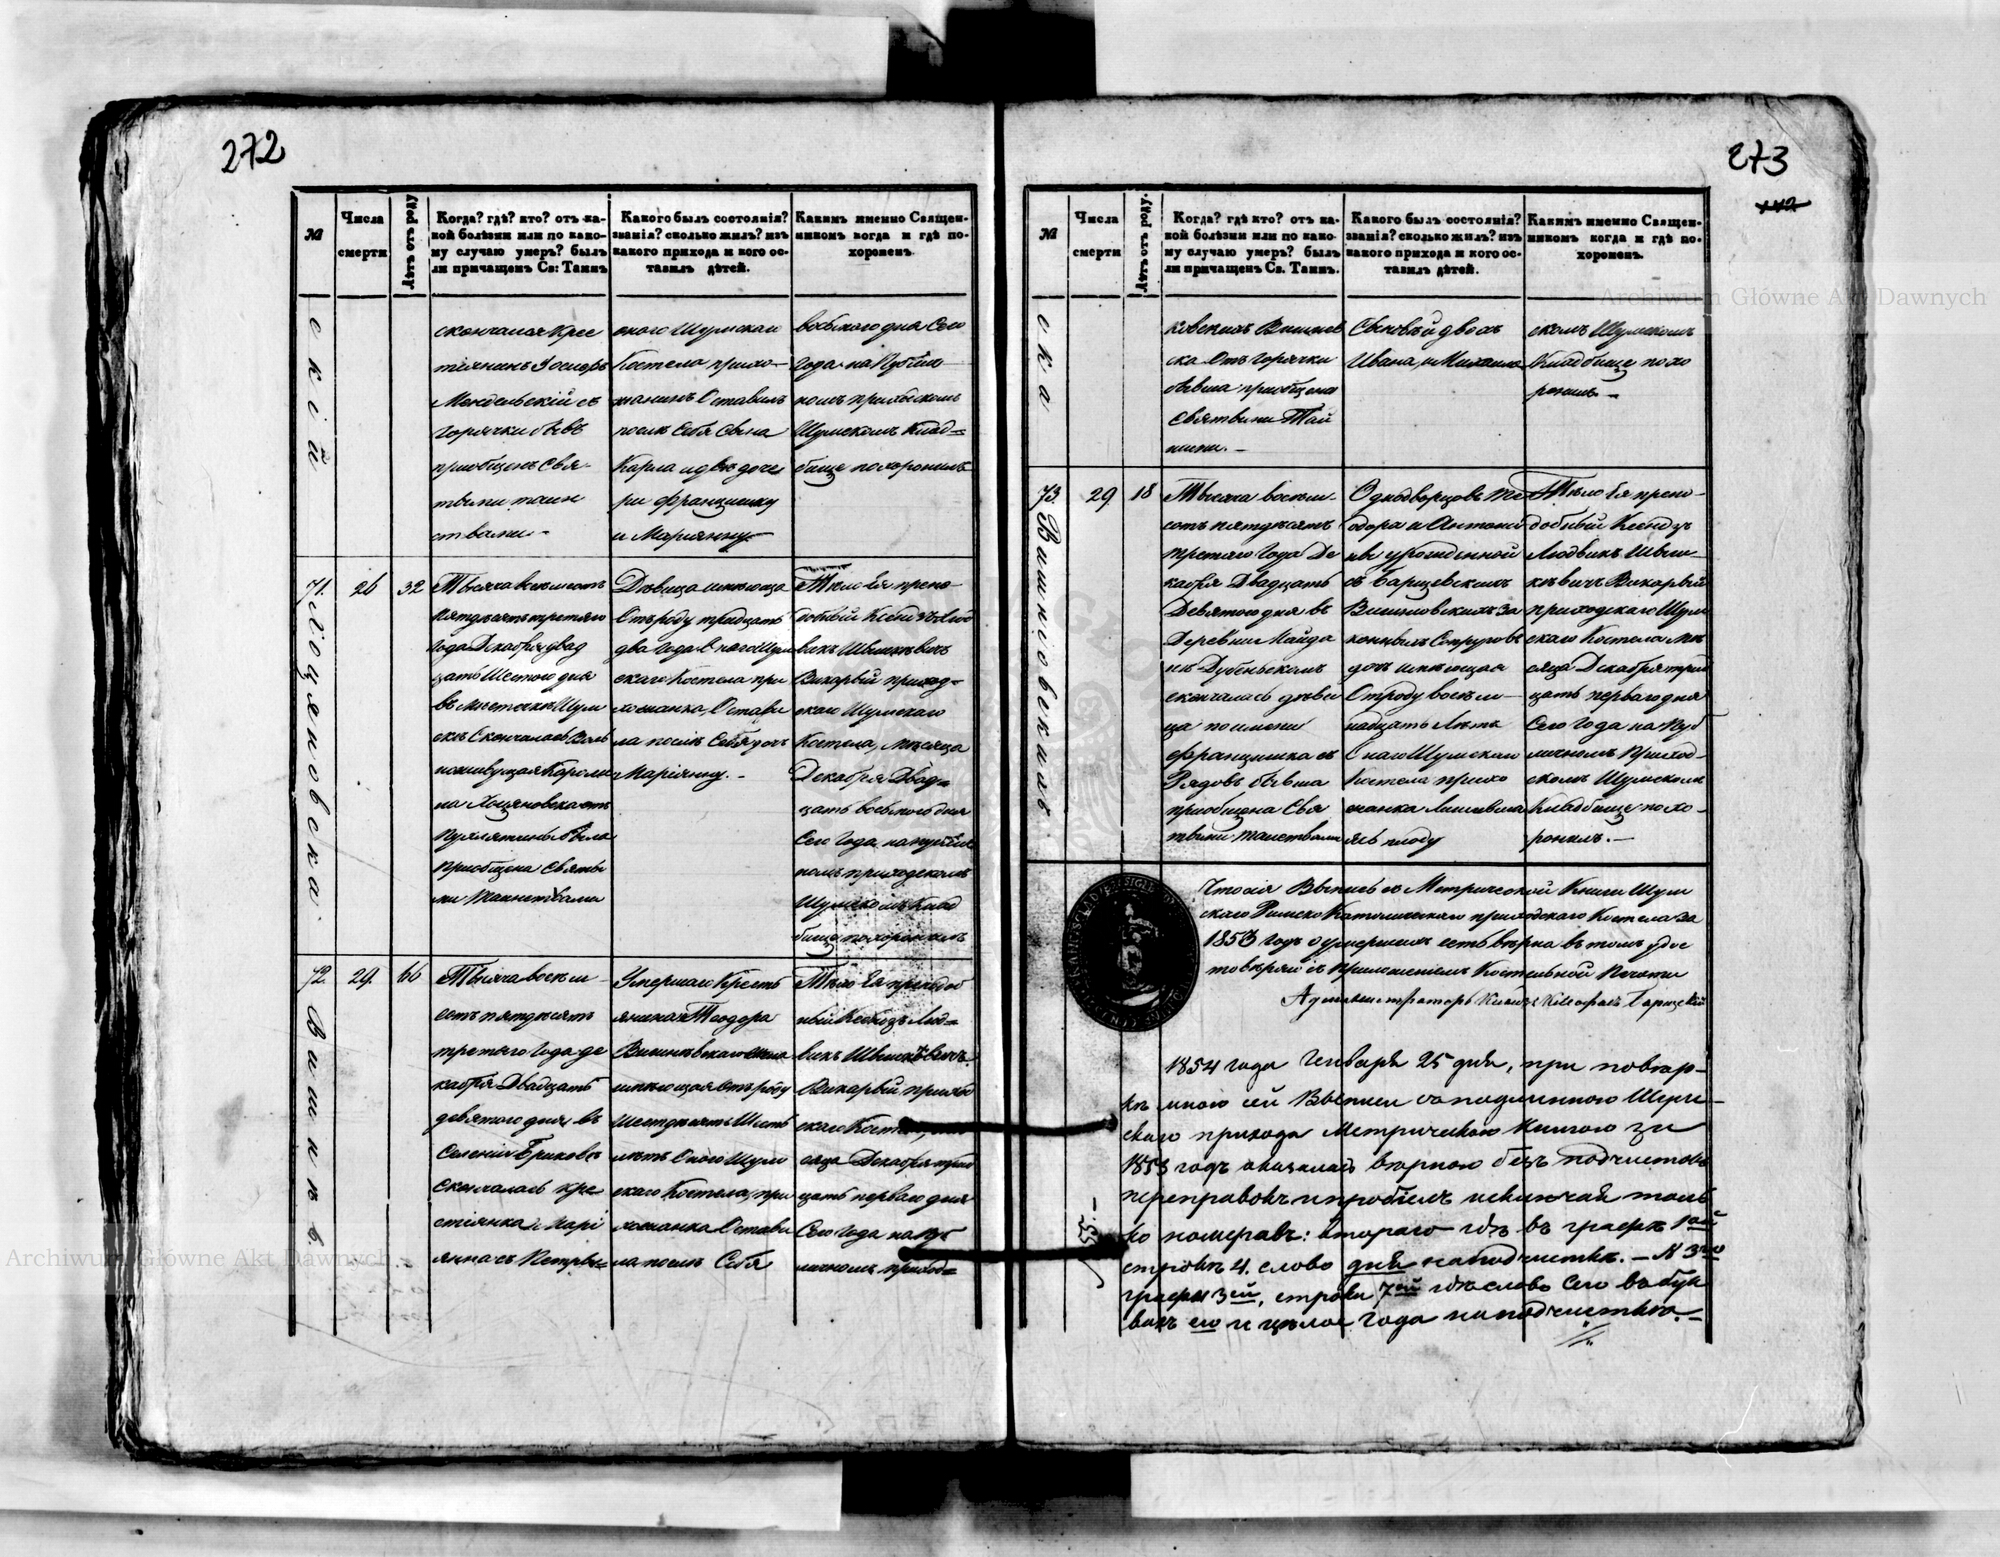 272
№
Числа смерти
Лѣтъ отъ роду
Когда? гдѣ? кто? отъ ка-
кой болѣзни или по како-
му случаю умеръ? былъ
ли причащенъ Св: Таинъ
Какого былъ состоянія?
званія? сколько жилъ? изъ
какого прихода и кого ос-
тавилъ дѣтей.
Какимъ именно Священ-
никомъ когда и гдѣ по-
хороненъ.
скій
скончался Крес
тянинъ Іосифъ
Мендельскій съ
горячки бывъ
пріобщенъ Свя-
тыми таин
ствами-
оного Шумскаго
Костела прихо-
жанинъ Оставилъ
послѣ Себя Сына
Карла и двѣ доче
ри Францишку
и Маріянну
восьмого дня Сего
года на Публич
номъ приходскомъ
Шумскомъ Клад-
бище похоронилъ
71.
26
32
Тысяча восемьсотъ
пятдесятъ третяго
года Декабря двад
цать Шестого дня
въ мѣстечкѣ Шум
скѣ Скончалась Воль
ноживущая Кароли
на
была
Пріобщена Святы
ми Таинствами
Дѣвица имѣюща
Отъ роду тридцать
два года Оного Шум
скаго Костела при
хожанка Остави
ла послѣ Себя дочь
Маріянну.-
Тѣло Ея препо
добный Ксендзъ Люд
викъ
Викарный приход-
скаго Шумскаго
Костела, мѣсяца
Декабря двад-
цать восьмого дня
Сего Года, на публич
номъ приходскомъ
Шумскомъ Клад
бище похоронилъ
72.
29.
66
Тысяча восемь
сотъ пятдесятъ
третяго года де
кабря двадцать
девятого дня въ
Селеніи Бриковъ
Скончалась кре
стіянка Марі
янна съ Петров-
Умершаго Кресть
янина Теодора
имѣющая отъ роду
Шестдесятъ Шесть
лѣтъ Оного Шум
скаго Костела, при
хожанка Остави
ла послѣ Себя
Тѣло Ея преподоб
ный Ксендзъ Люд-
викъ
Викарный приход
скаго Костела, мѣ
сяца Декабря трид
цать перваго дня
Сего Года на Пуб
личномъ приход-
273
142
№
Числа смерти
Лѣтъ отъ роду.
Когда? гдѣ кто? отъ ка-
кой болѣзни или по како-
му случаю умеръ? былъ
ли причащенъ Св. Таин.
Какого былъ состоянія?
званія? сколько жилъ? изъ
какого прихода и кого ос-
тавилъ дѣтей.
Какимъ именно Священ-
никомъ когда и гдѣ по-
хороненъ.
ска
ковскихъ
ска Отъ горячки
бывша пріобщена
Святыми Тай
нами.-
Сыновей двохъ
Ивана, и Михаила
скомъ Шумскомъ
Кладбище похо
ронилъ.-
73.
Вишніовскихъ
29
18
Тысяча восемь-
сотъ пятдесятъ
третяго года Де
кабря Двадцать
Девятого дня въ
Деревни Майда
нѣ Дубенскомъ
скончалась дѣви
ца по имени
Францишка съ
Рядовъ бывша
пріобщена Свя
тыми таинствами
Однодворцовъ Те
одора и Антони
ны урожденной
съ Барщевскихъ
Вишніовскихъ за
конныхъ Супруговъ
дочь имѣющая
Отъ роду восемь-
надцать Лѣтъ
Оного Шумскаго
Костела прихо
жанка
Тѣло Ея препо-
добный Ксендзъ
Людвикъ
Викарный
приходскаго Шум
скаго Костела мѣ
сяца Декабря трид
цать перваго дня
Сего Года на Пуб
личномъ Приход-
скомъ Шумскомъ
Кладбище похо-
ронилъ.-
Что сія Выпись съ Метрической Книги Шум
скаго Римско Католическаго приходскаго Костела за
1853 годъ о умершихъ есть вѣрна въ томъ удос
товѣряю съ Приложеніемъ Костельной Печати
Администраторъ Ксендзъ
1854 года Генваря 25 дня, при повѣр-
кѣ мною сей Выписи съ подлинною Шум-
скаго прихода Метрическою Книгою за
1853 годъ оказалась вѣрною безъ подчистокъ
переправокъ и пробѣлъ исключая толь
ко номеровъ: втораго гдѣ въ графѣ 1ой
строкѣ 4. слово дня на подчисткѣ.- № 3го
графы 3ей, строки 7ой гдѣ слово Сего въ бук
вахъ его и цѣлое года на подчисткѣ.-
Archiwum Główne Akt Dawnych
Archiwum Główne Akt Dawnych